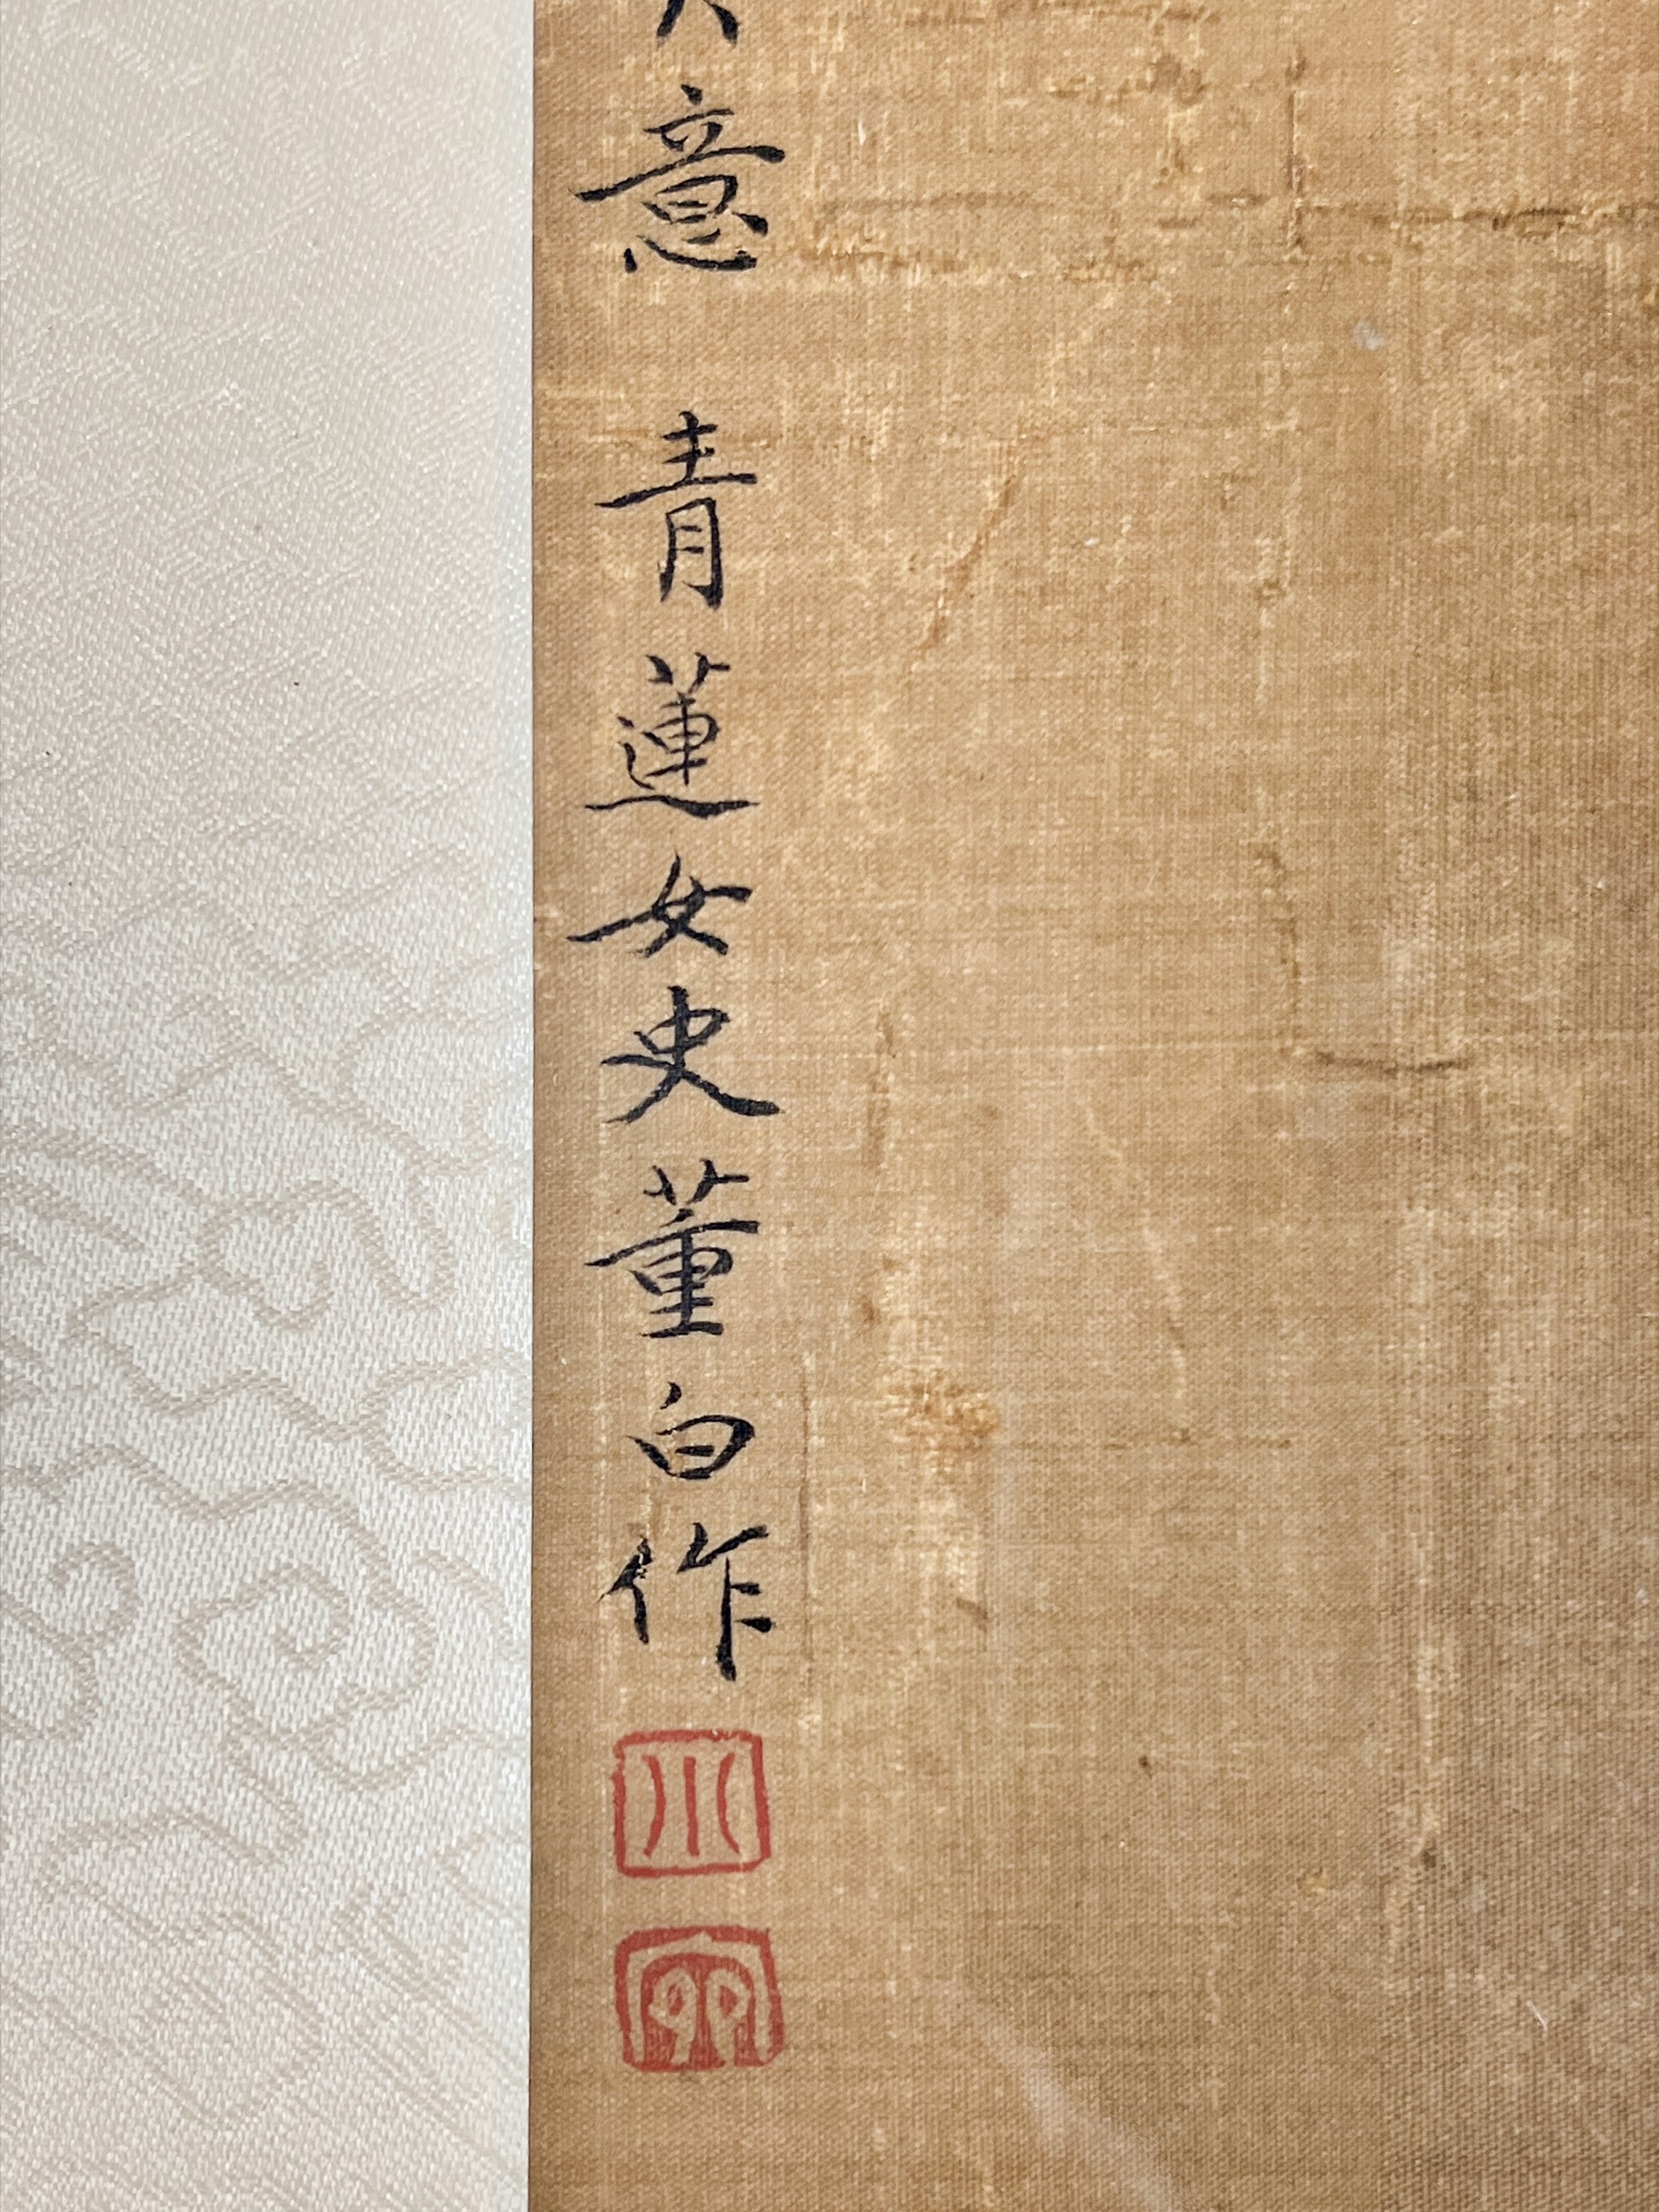 意 青蓮女史董白作
小
宛